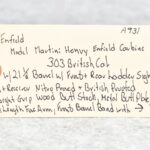 A931
Enfield
Model Martini Henry Enfield Carbine
303 British Cal
w/21½ Barrel w/ Front & Rear Ladder Sight
& Receiver Nitro Proved & British Proofed
Grip Wood Butt Stock, Metal Butt Plate
Length Fore Arm, Front Barrel Band with →